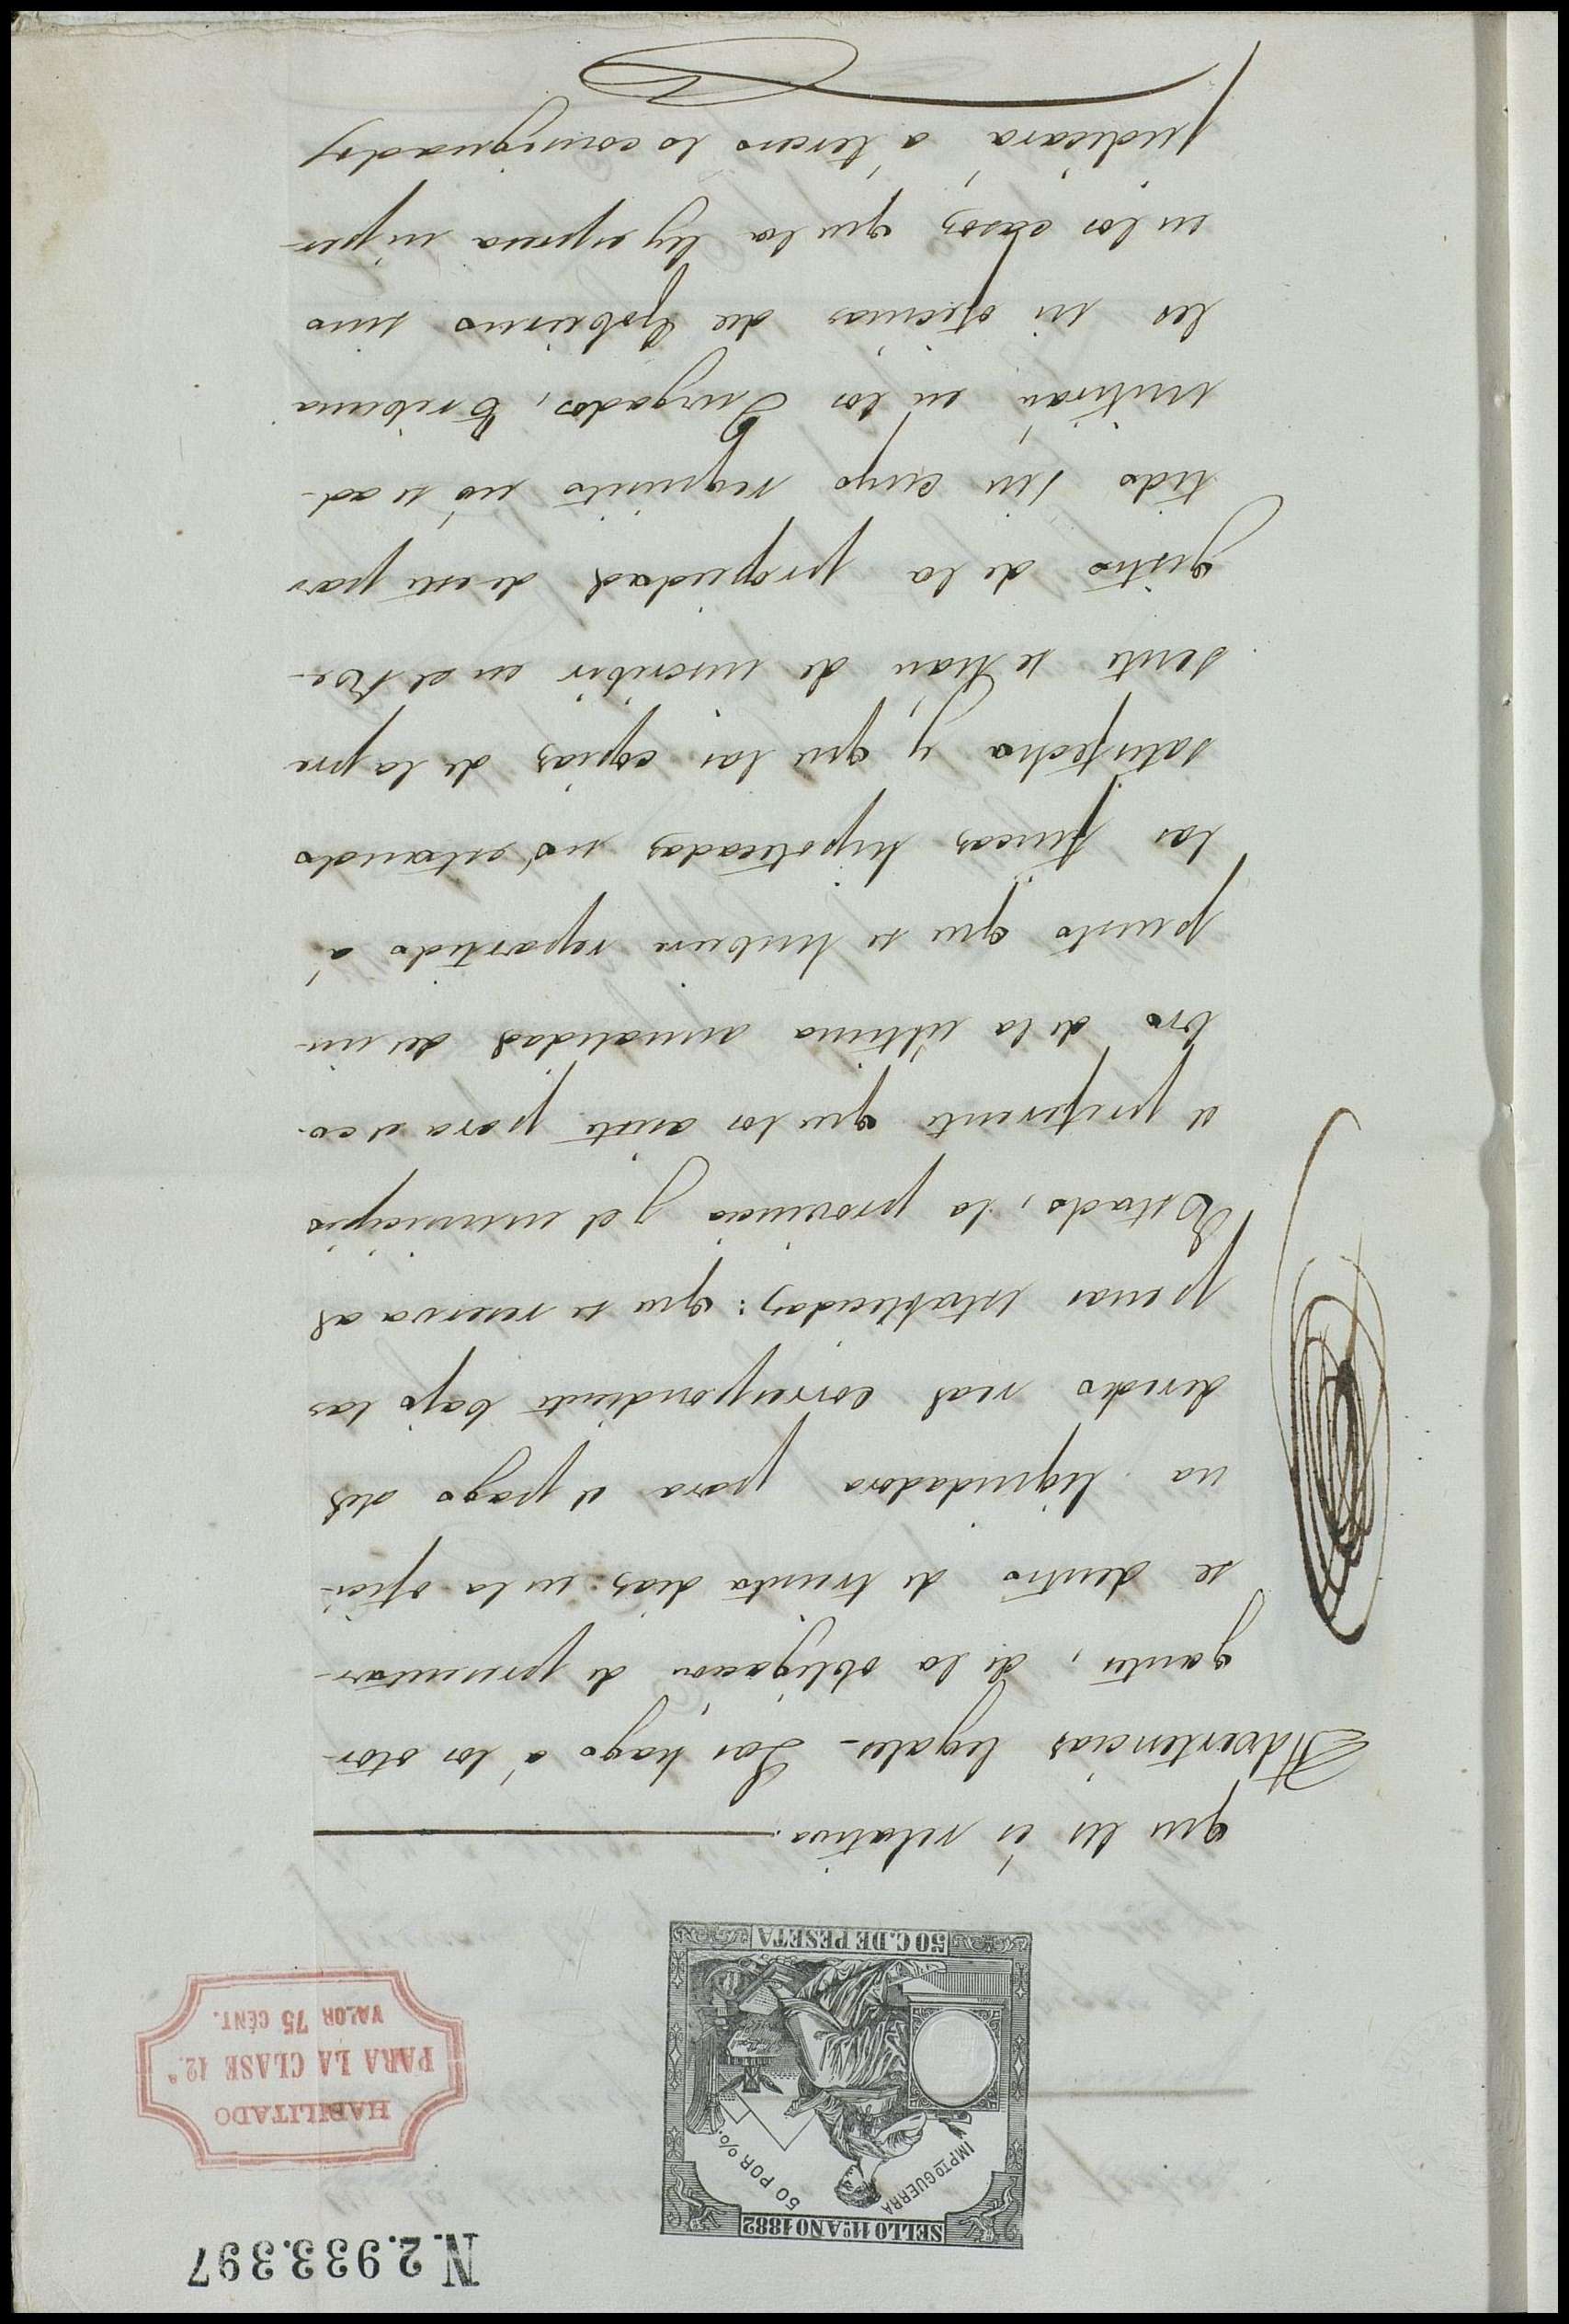 N. 2.933.397
SELLO 11º AÑO 1882
IMPTO GUERRA 50 POR %.
50 C. DE PESETA
HABILITADO
PARA LA CLASE 12.ª
VALOR 75 CÉNT.
que les és relativo.
Advertencias legales - Las hago á los otor-
gantes, de la obligacion de presentar-
se dentro de treinta dias en la ofici-
na liquidadora para el pago del
derecho real correspondiente bajo las
penas establecidas: que se reserva al
Estado, la provincia y el municipio
el preferente que los asiste para el co-
bro de la última anualidad de im-
puesto que se hubiere repartido á
las fincas hipotecadas nó estando
satisfecha y que las copias de la pre
sente se han de inscribir en el Re-
gistro de la propiedad de este par
tido sin cuyo requisito nó se ad-
mitirán en los Juzgados, Tribuna
les ni oficinas de Gobierno sino
en los casos que la ley expresa ni per-
judicará á tercero lo consignado